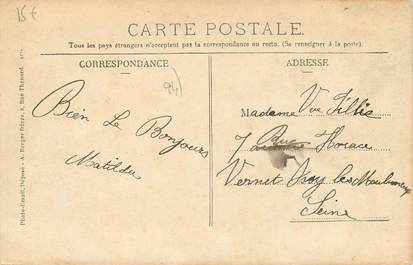 15€
CARTE POSTALE.
Tous les pays étrangers n'acceptent pas la correspondance au recto. (Se renseigner à la poste).
CORRESPONDANCE
ADRESSE
94)
Bien Le Bonjours
Matilda
Madame Vve
7 Rue Horace
Vernet Issy les Moulineaux
Seine
Photo-Émail, Déposé - A. Berger frères, 9, Rue Thénard